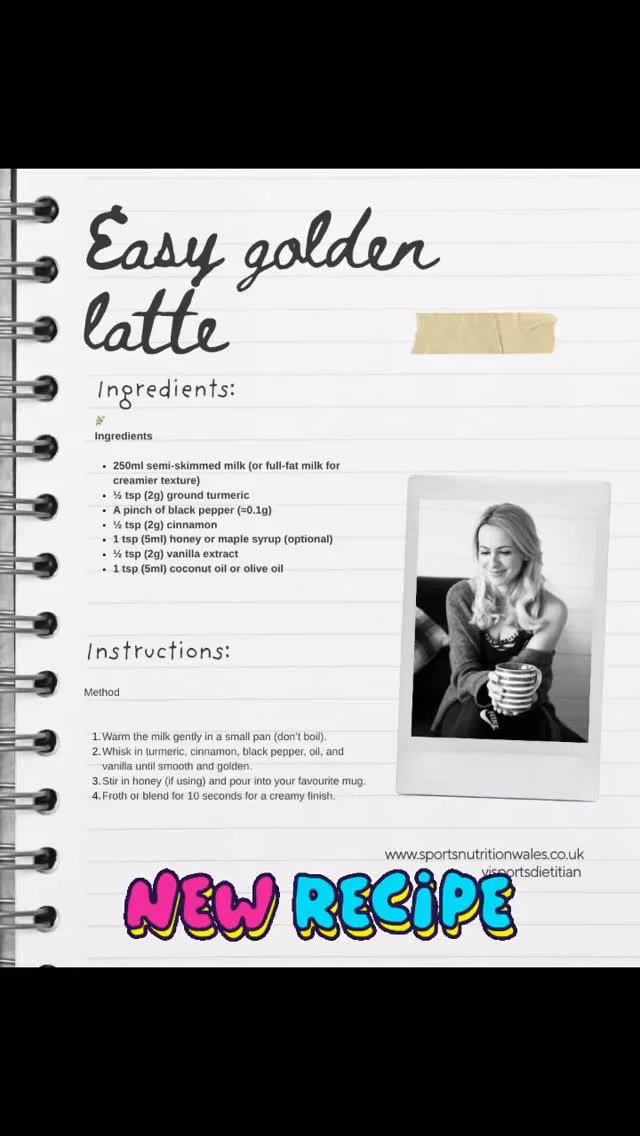 Easy golden
latte
Ingredients:
Ingredients
• 250ml semi-skimmed milk (or full-fat milk for
creamier texture)
• ½ tsp (2g) ground turmeric
• A pinch of black pepper (≈0.1g)
• ½ tsp (2g) cinnamon
• 1 tsp (5ml) honey or maple syrup (optional)
• ½ tsp (2g) vanilla extract
• 1 tsp (5ml) coconut oil or olive oil
Instructions:
Method
1. Warm the milk gently in a small pan (don't boil).
2. Whisk in turmeric, cinnamon, black pepper, oil, and
vanilla until smooth and golden.
3. Stir in honey (if using) and pour into your favourite mug.
4. Froth or blend for 10 seconds for a creamy finish.
www.sportsnutritionwales.co.uk
visportsdietitian
NEW RECIPE